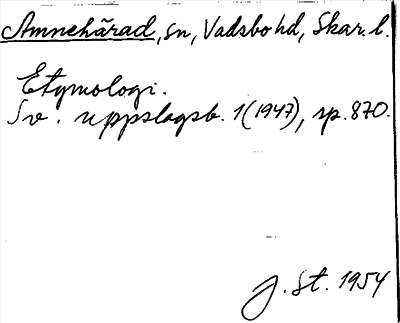 Amnehärad, sn, Vadsbo hd, Skar. l.
Etymologi.
Sv. uppslagsb. 1 (1947), sp. 870.
J. St. 1954